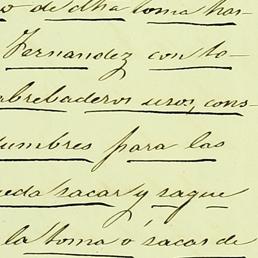 o de dha toma has-
Fernandez con to-
abrebaderos usos, cons-
tumbres para las
ueda sacar y saque
la toma ó sacar de